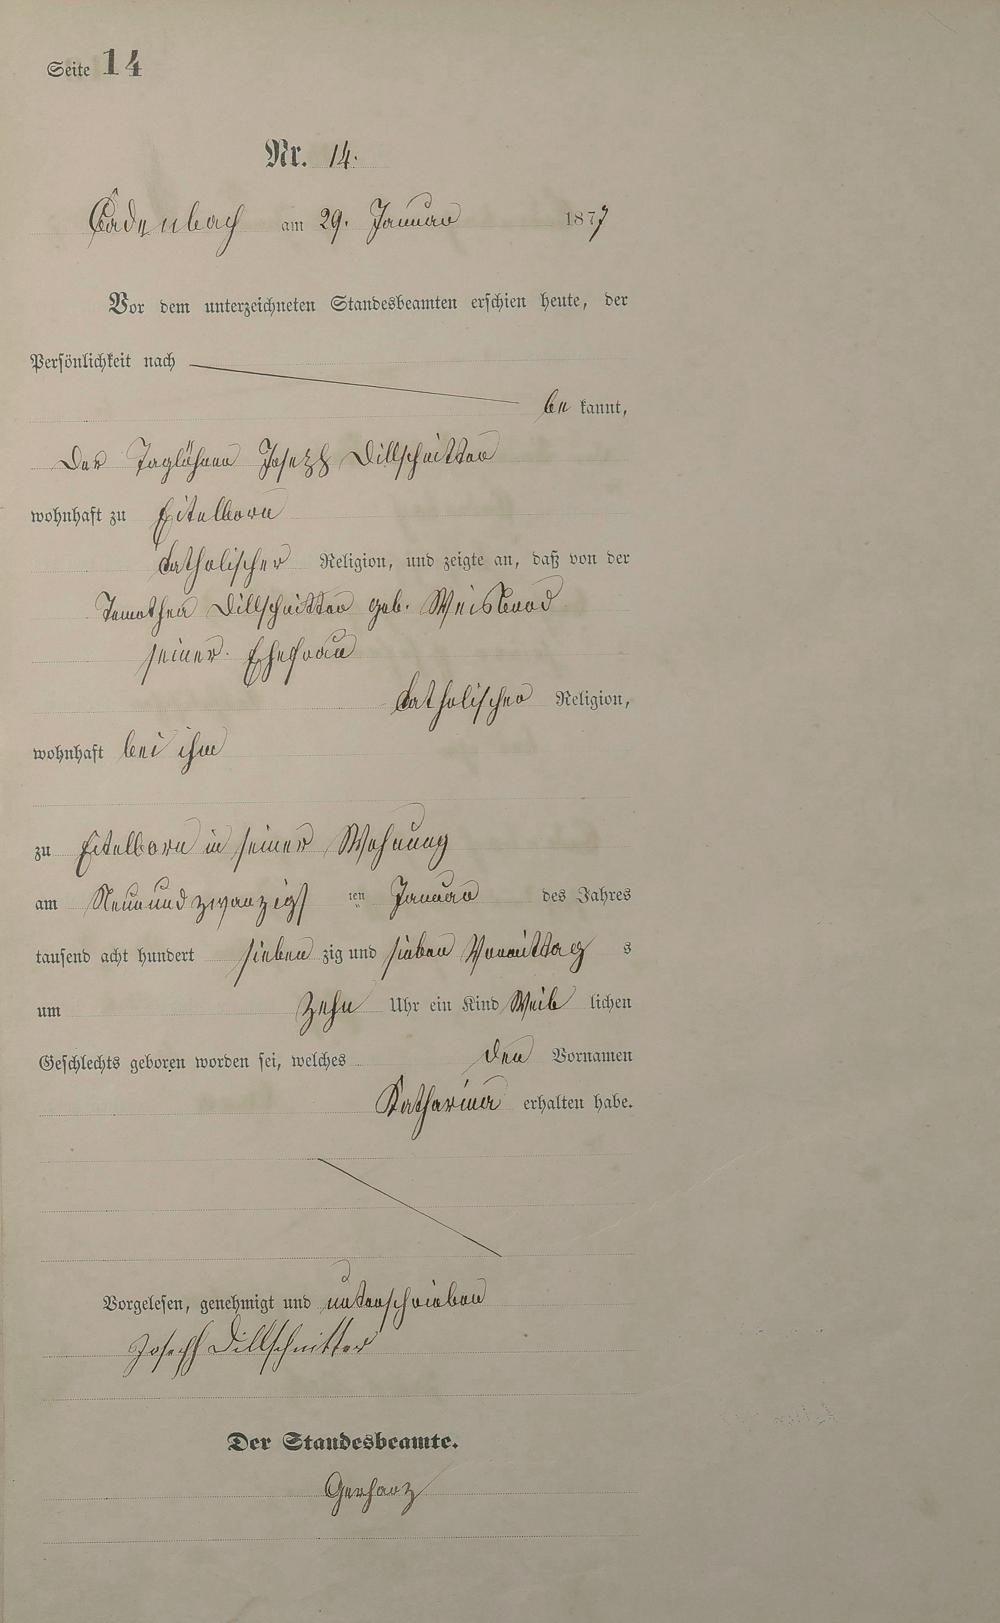 Seite 14
Nr. 14.
Cadenbach am 29. Januar 1877
Vor dem unterzeichneten Standesbeamten erschien heute, der
Persönlichkeit nach
be kannt,
der Taglöhner Joseph Dillschnitter
wohnhaft zu Eitelborn
katholischer Religion, und zeigte an, daß von der
Dillschnitter geb. Weisbrod
seiner Ehefrau
katholischer Religion,
wohnhaft bei ihm
zu Eitelborn in seiner Wohnung
am Neunundzwanzigs ten Januar des Jahres
tausend acht hundert sieben zig und sieben Vormittag s
um zehn Uhr ein Kind Weib lichen
Geschlechts geboren worden sei, welches den Vornamen
Katharina erhalten habe.
Vorgelesen, genehmigt und unterschrieben
Joseph Dillschnitter
Der Standesbeamte.
Gerharz